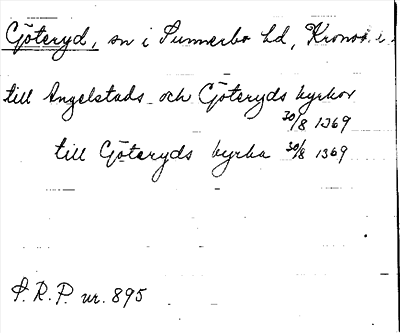 Göteryd, sn i Sunnerbo hd, Kronob. l.
till Angelstads och Göteryds kyrkor
30/8 1369
till Göteryds kyrka 30/8 1369
S.R.P. nr. 895